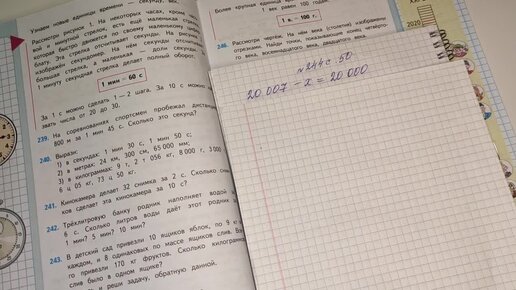 Узнаем новые единицы времени — секунду, век.
Рассмотри рисунок 1. На некоторых часах, кроме
вой и минутной стрелок, есть ещё маленькая
которая быстро движется по своему маленькому цифер-
блату. Эта стрелка отсчитывает секунды. На
изображён секундомер. На нём секунды отсчитывает
большая стрелка, а маленькая — доли секунды.
1 минуту секундная стрелка делает полный оборот.
1 мин = 60 с
За 1 с можно сделать 1 — 2 шага. За 10 с можно
звать числа от 20 до 30.
239. На соревнованиях спортсмен пробежал дистанцию
800 м за 1 мин 45 с. Сколько это секунд?
240. Вырази:
1) в секундах: 1 мин 30 с, 1 мин 50 с;
2) в метрах: 24 км, 300 см, 65 000 мм;
3) в килограммах: 9 т, 2 т 056 кг, 8 000 г, 3
6 ц 05 кг, 73 ц 50 кг.
241. Кинокамера делает 32 снимка за 2 с. Сколько сним-
ков сделает эта кинокамера за 10 с?
242. Трёхлитровую банку родник наполняет водой
6 с. Сколько литров воды даёт этот родник
1 мин? 5 мин? 10 мин?
243. В детский сад привезли 10 ящиков яблок, по 9 кг
каждом, и 8 одинаковых по массе ящиков слив. Все-
го привезли 170 кг фруктов. Сколько килограммов
слив было в одном ящике?
и реши задачу, обратную данной.
Более крупная единица
век равен 100 годам.
1 в. = 100 г.
246. Рассмотри чертёж. На нём века (столетия) изображены
отрезками. Найди точки, показывающие конец четвёрто-
го века, восемнадцатого века, двадцатого века.
2020
№ 244 с 50
20 007 − x = 20 000